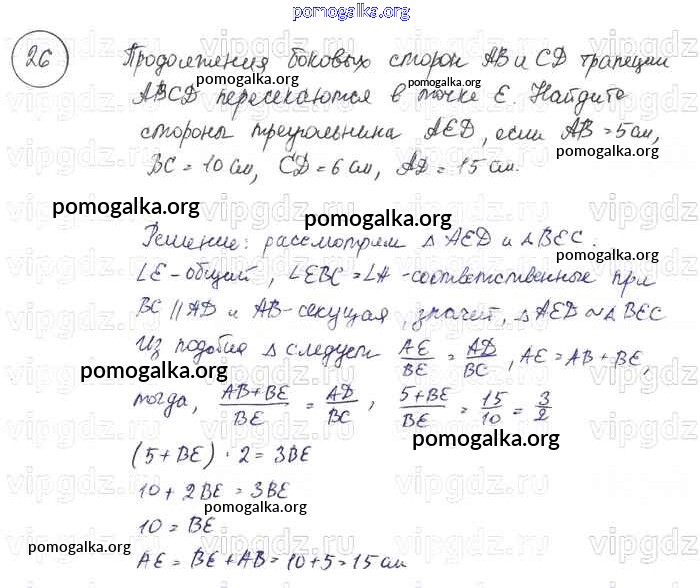 pomogalka.org
26 Продолжения боковых сторон AB и CD трапеции
pomogalka.org
ABCD пересекаются в точке E. Найдите
стороны треугольника AED, если AB = 5 см,
pomogalka.org
BC = 10 см, CD = 6 см, AD = 15 см.
pomogalka.org
pomogalka.org
Решение: рассмотрим △ AED и △ BEC.
∠E - общий, ∠EBC = ∠A - соответственные при
BC || AD и AB - секущая, значит, △ AED ~ △ BEC
Из подобия △ следует AE/BE = AD/BC, AE = AB + BE,
pomogalka.org
тогда, AB+BE/BE = AD/BC, 5+BE/BE = 15/10 = 3/2
pomogalka.org
(5 + BE) · 2 = 3BE
10 + 2BE = 3BE
10 = BE
pomogalka.org
pomogalka.org
AE = BE + AB = 10 + 5 = 15 см
vipgdz.ru